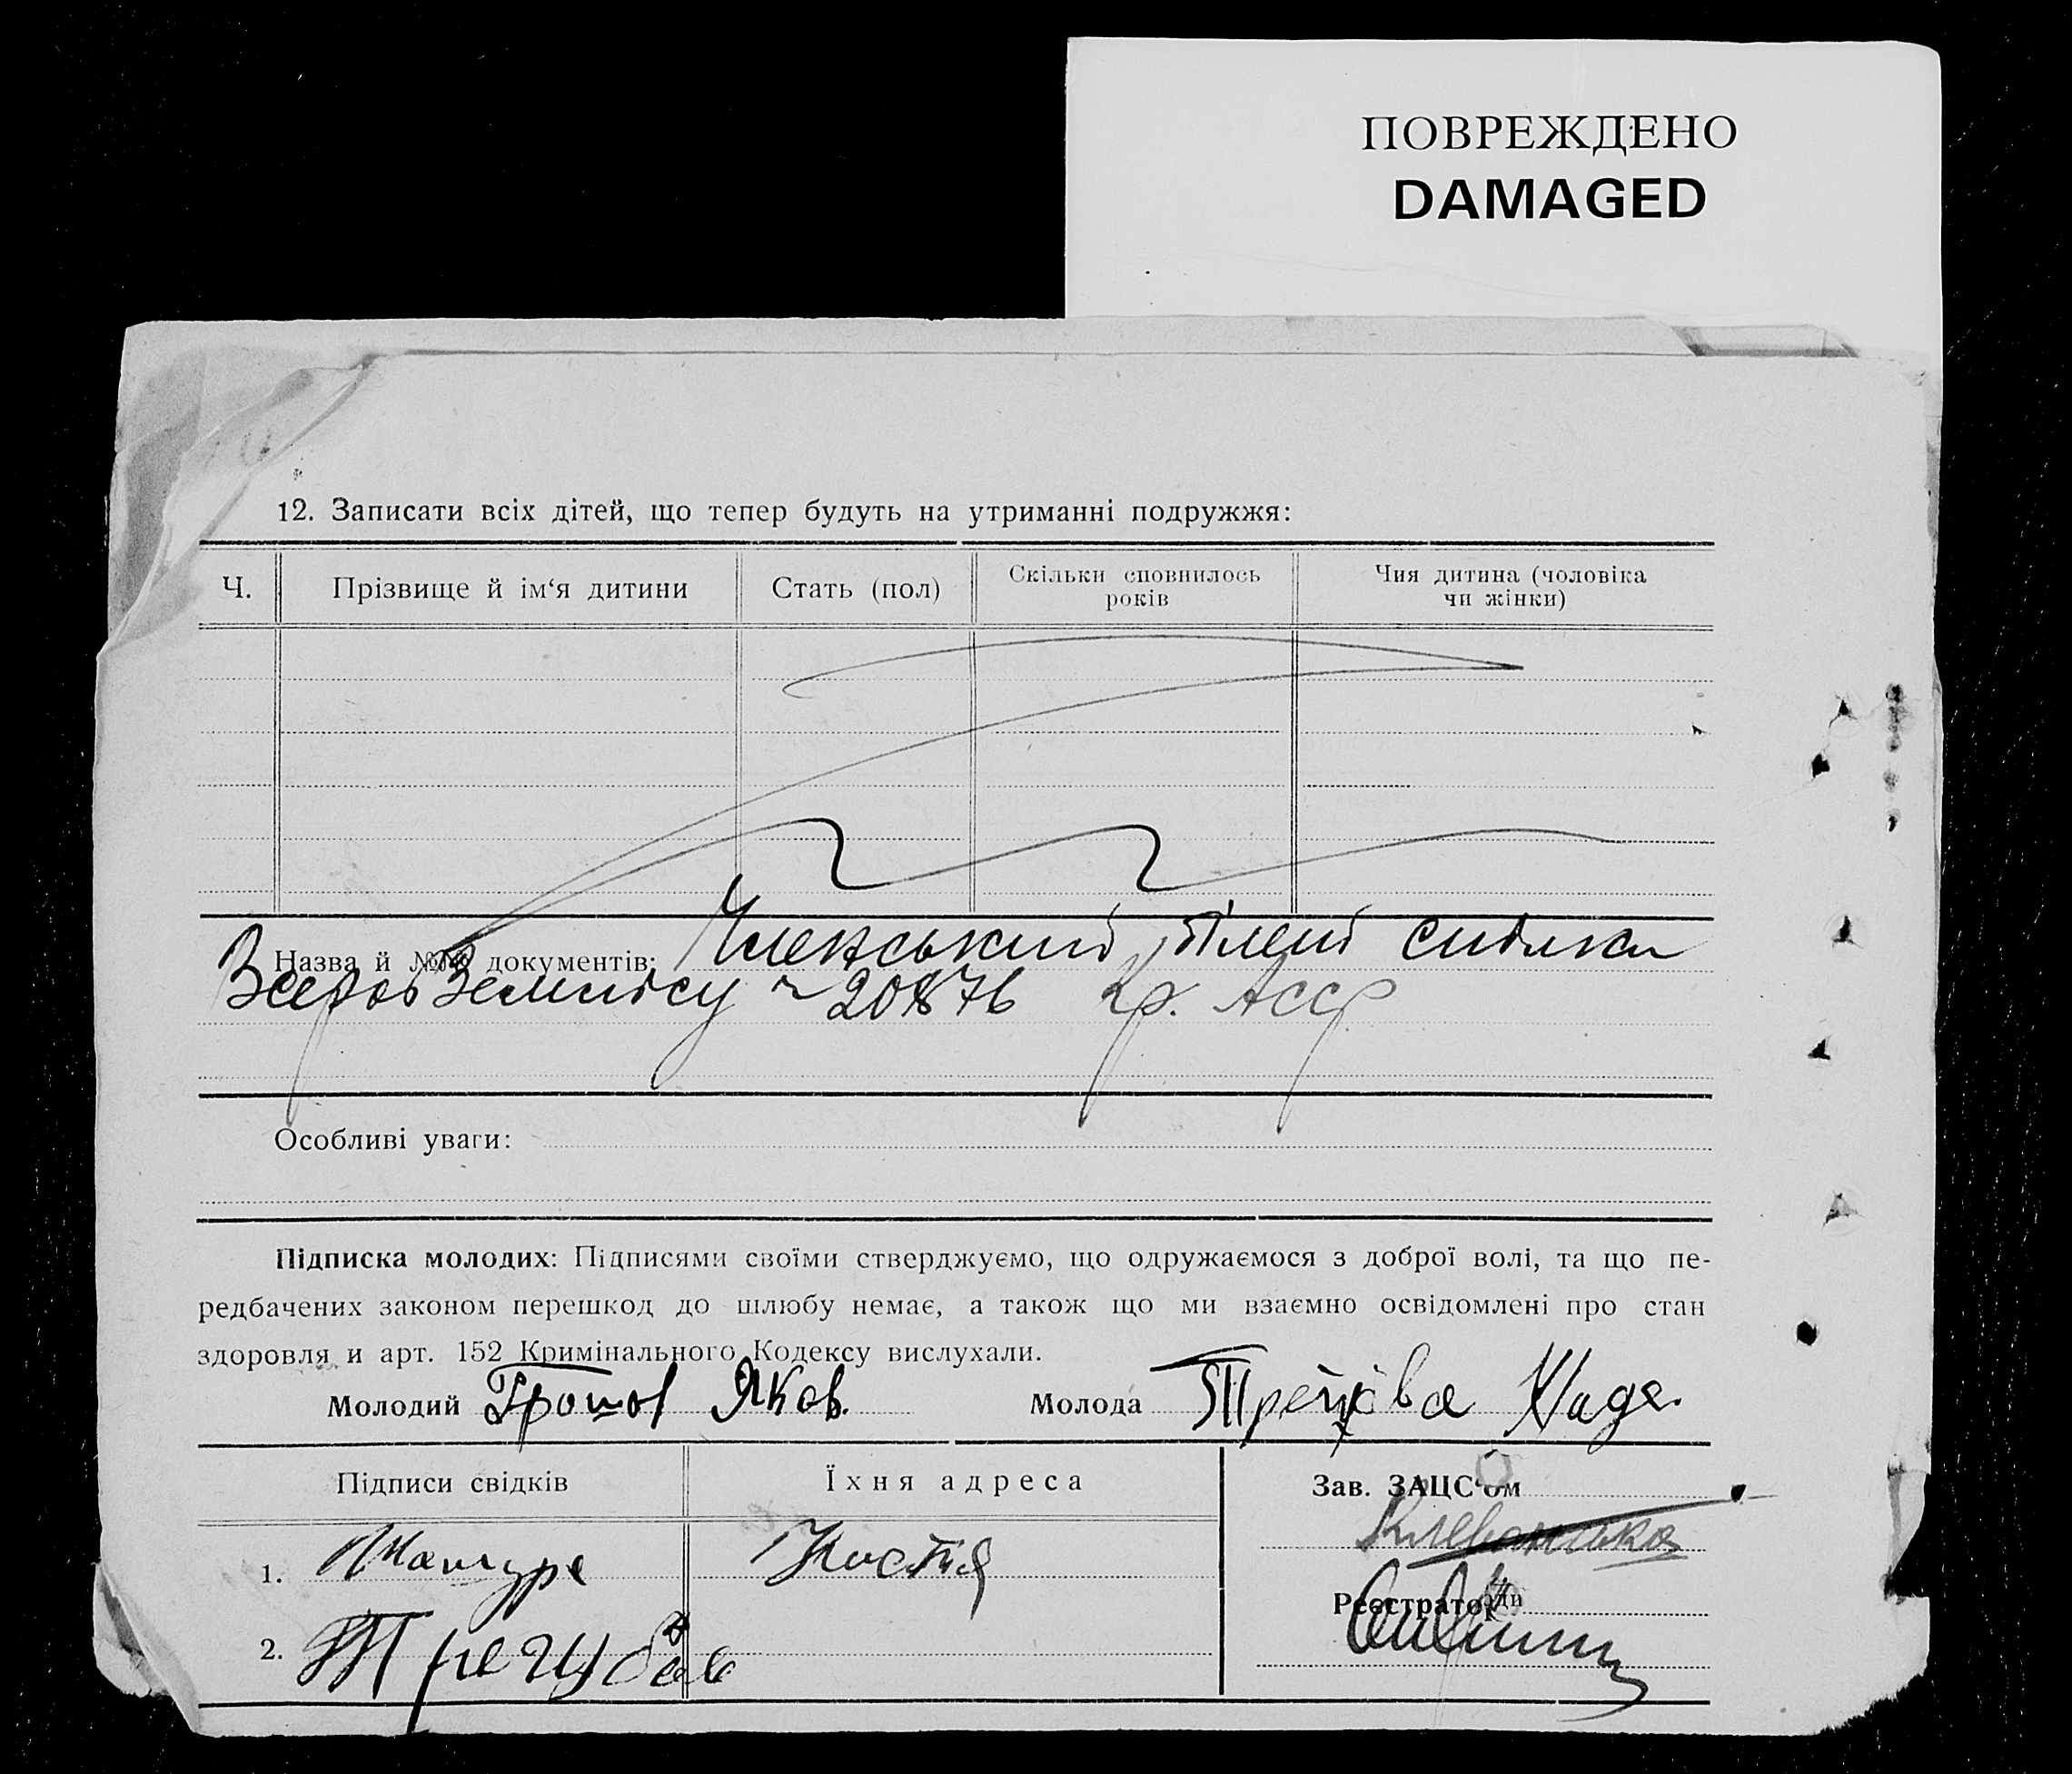 ПОВРЕЖДЕНО
DAMAGED
12. Записати всіх дітей, що тепер будуть на утриманні подружжя:
Ч.
Прізвище й ім‘я дитини
Стать (пол)
Скільки сповнилось
років
Чия дитина (чоловіка
чи жінки)
Назва й №№ документів: Членський білет спілки
20876 Кр. Асср
Особливі уваги:
Підписка молодих: Підписями своїми стверджуємо, що одружаємося з доброї волі, та що пе-
редбачених законом перешкод до шлюбу немає, а також що ми взаємно освідомлені про стан
здоровля и арт. 152 Кримінального Кодексу вислухали.
Молодий Яков. Молода Надя.
Підписи свідків
Їхня адреса
Зав. ЗАЦС‘ом
1.
Реєстратор
2.